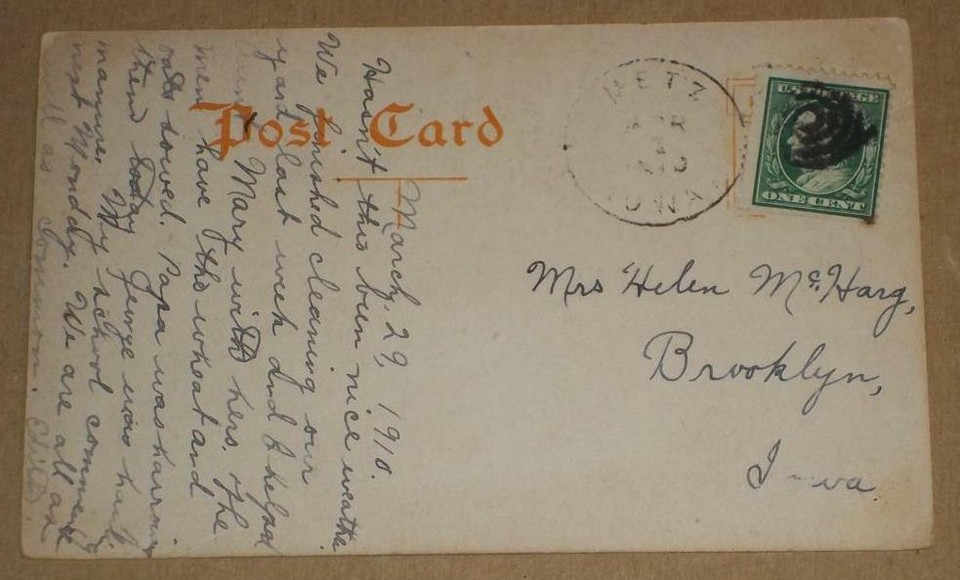 Post Card
METZ
IOWA
ONE CENT
Mrs Helen Mc. Harg,
Brooklyn,
Iowa
March, 29, 1910.
Hasn't this been nice weathe
We finished cleaning our
yard last week and I helped
Mary with hers. The
men have the wheat and
oats sowed. Papa was harrowing
then today George was haul
manure. My school commenc
next Monday. We are all as
well as common.